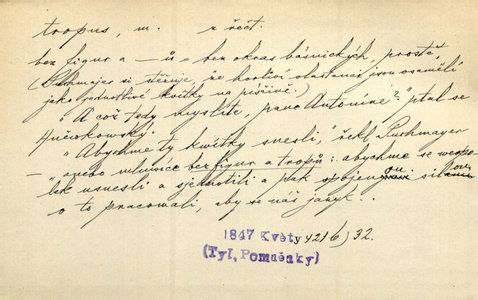 tropus, m. z řečt.
bez figur a —ů = bez okras básnických, prostě
(Puchmajer si stěžuje, že horliví vlastenci jsou osamělí
jako jednotlivé kvítky na písčině)
"A což tedy myslíte, pane Antoníne?" ptal se
Hněvkovský.
"Abychme ty kvítky snesli," řekl Puchmayer
— "anebo mluvíce bez figur a tropů: abychme se
lek usnesli a sjednotili a pak spojenou silou
o to pracovali, aby se náš jazyk...
1847 Květy 421 b) 32.
(Tyl, Pomněnky)